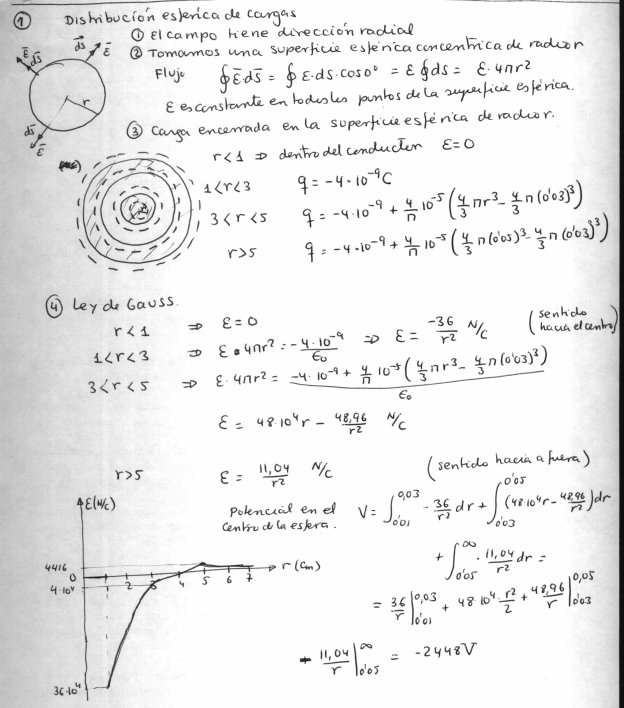 ① Distribución esférica de cargas
① El campo tiene dirección radial
② Tomamos una superficie esférica concentrica de radio r
Flujo ∮Ē·ds̄ = ∮ε·ds·cos0° = ε∮ds = ε·4πr²
ε es constante en todos los puntos de la superficie esférica.
③ Carga encerrada en la superficie esférica de radio r.
r<1 ⇒ dentro del conductor ε=0
1<r<3 q = -4·10⁻⁹C
3<r<5 q = -4·10⁻⁹ + 4/π 10⁻⁵ (4/3 πr³ - 4/3 π(0'03)³)
r>5 q = -4·10⁻⁹ + 4/π 10⁻⁵ (4/3 π(0'05)³ - 4/3 π(0'03)³)
④ Ley de Gauss.
r<1 ⇒ ε=0
1<r<3 ⇒ ε·4πr² = -4·10⁻⁹/ε₀ ⇒ ε = -36/r² N/C (sentido hacia el centro)
3<r<5 ⇒ ε·4πr² = -4·10⁻⁹ + 4/π 10⁻⁵ (4/3 πr³ - 4/3 π(0'03)³) / ε₀
ε = 48·10⁴r - 48,96/r² N/C
r>5 ε = 11,04/r² N/C (sentido hacia afuera)
Potencial en el centro de la esfera. V = ∫0'01 0,03 -36/r² dr + ∫0'03 0'05 (48·10⁴r - 48,96/r²)dr
+ ∫0'05 ∞ 11,04/r² dr =
= 36/r |0'01 0,03 + 48·10⁴·r²/2 + 48,96/r |0'03 0,05
- 11,04/r |0'05 ∞ = -2448V
E(N/C)
4416
0
4·10⁴
36·10⁴
1 2 3 4 5 6 7 r (cm)
ds̄ Ē
Ē ds̄
r
ds̄
Ē